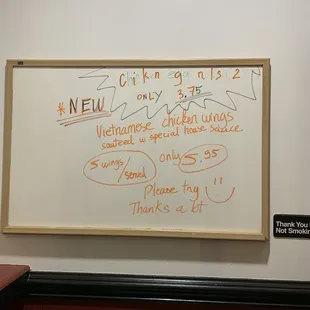 Chickn egg rolls 2
ONLY 3.75
*NEW
Vietnamese chicken wings
sauteed w special house sauce
5 wings/served only 5.95
Please try
Thanks a lot
Thank You
Not Smokin